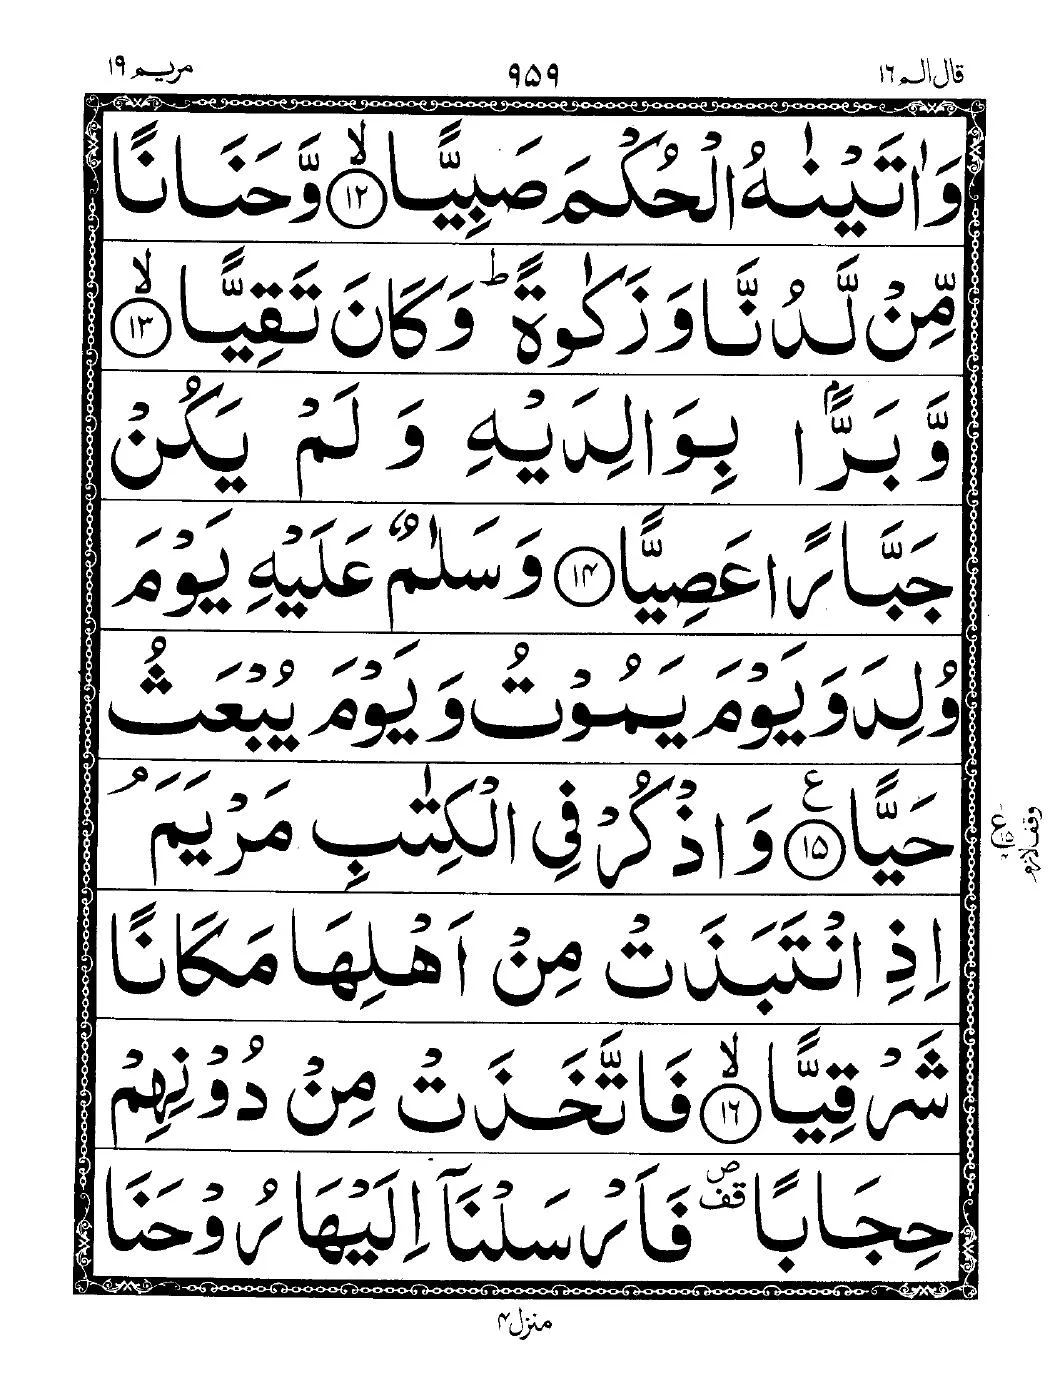 قال الم ١٦
٩٥٩
مريم ١٩
وَاٰتَيْنٰهُ الْحُكْمَ صَبِيًّا ۙ‏ ﴿١٢﴾ وَّحَنَانًا
مِّنْ لَّدُنَّا وَزَكٰوةً ؕ وَكَانَ تَقِيًّا ۙ‏ ﴿١٣﴾
وَّبَرًّۢا بِوَالِدَيْهِ وَلَمْ يَكُنْ
جَبَّارًا عَصِيًّا ﴿١٤﴾ وَسَلٰمٌ عَلَيْهِ يَوْمَ
وُلِدَ وَيَوْمَ يَمُوْتُ وَيَوْمَ يُبْعَثُ
حَيًّا ﴿١٥﴾ ع وَاذْكُرْ فِى الْكِتٰبِ مَرْيَمَ ۘ
وقف لازم
ع
١٥
اِذِ انْتَبَذَتْ مِنْ اَهْلِهَا مَكَانًا
شَرْقِيًّا ۙ‏ ﴿١٦﴾ فَاتَّخَذَتْ مِنْ دُوْنِهِمْ
حِجَابًا قف ص فَاَرْسَلْنَاۤ اِلَيْهَا رُوْحَنَا
منزل ٤